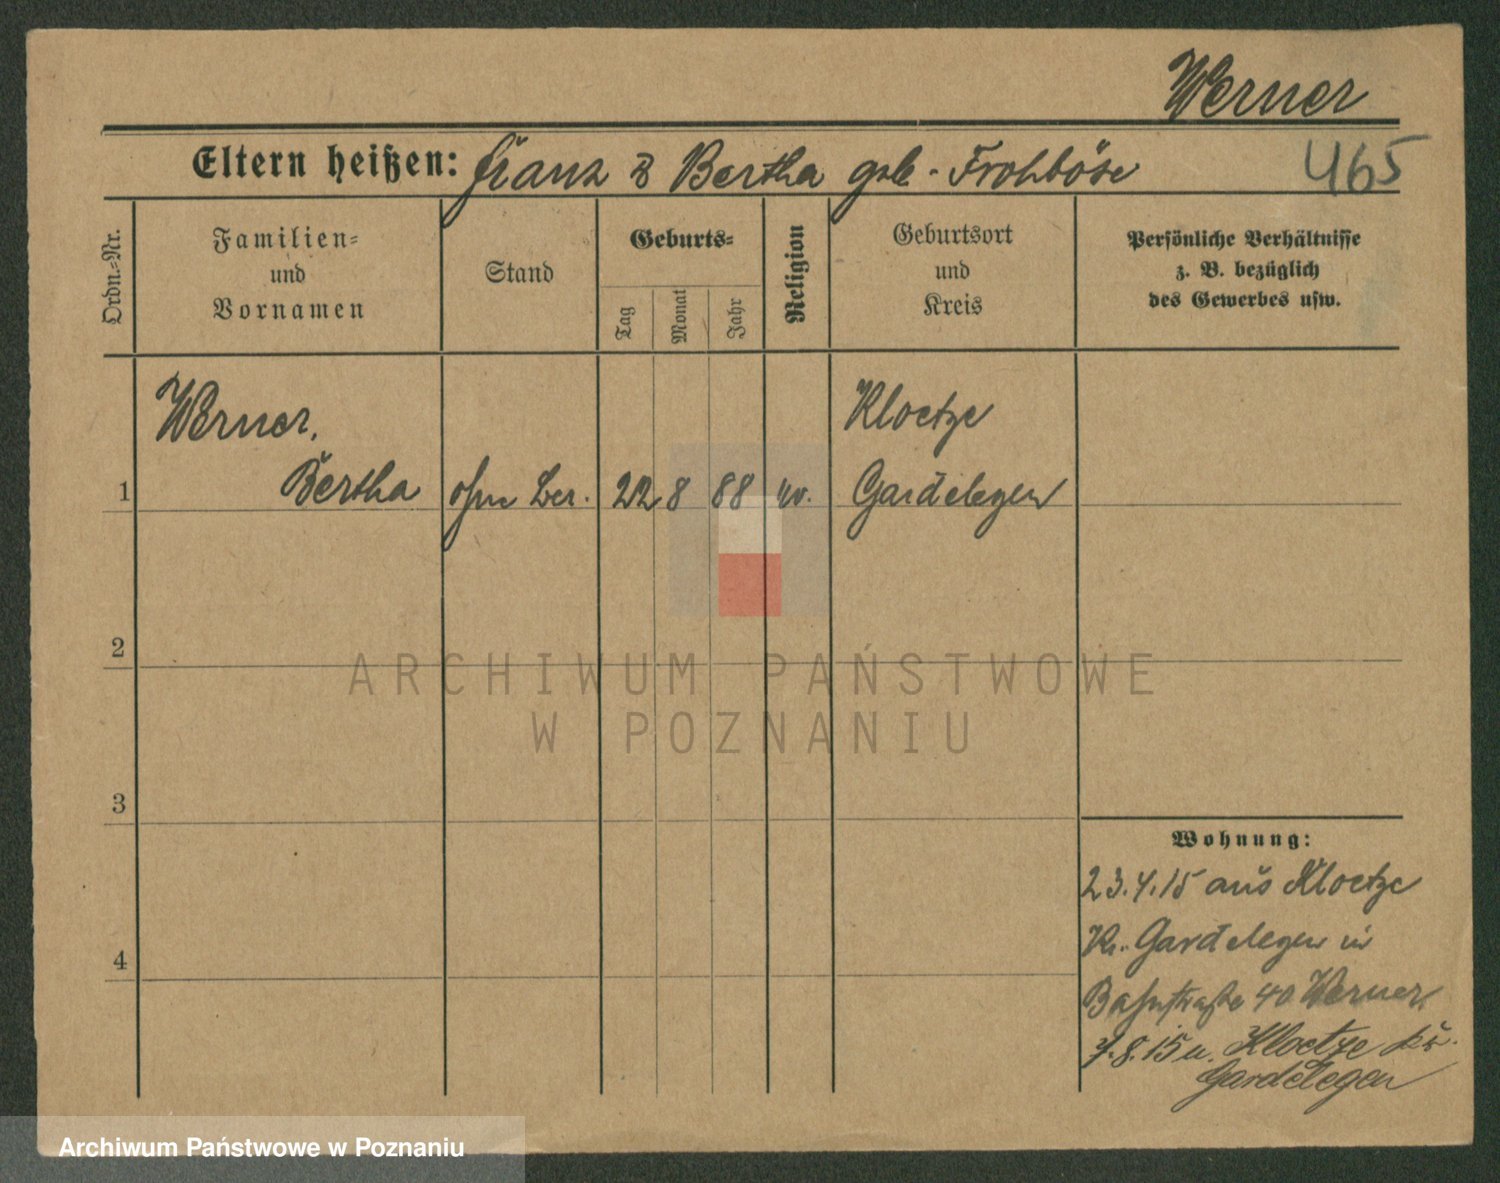 Werner
Eltern heißen: Franz & Bertha geb. Frohböse
465
Ordn.=Nr.
Familien=
und
Vornamen
Stand
Geburts=
Tag
Monat
Jahr
Religion
Geburtsort
und
Kreis
Persönliche Verhältnisse
z. B. bezüglich
des Gewerbes usw.
Werner,
Bertha
1
ohne Ber.
22
8
88
ev.
Kloetze
Gardelegen
2
3
4
Wohnung:
23.4.15 aus Kloetze
Kr. Gardelegen in
Bahnstraße 40 Werner
7.8.15 n. Kloetze Kr.
Gardelegen
ARCHIWUM PAŃSTWOWE
W POZNANIU
Archiwum Państwowe w Poznaniu